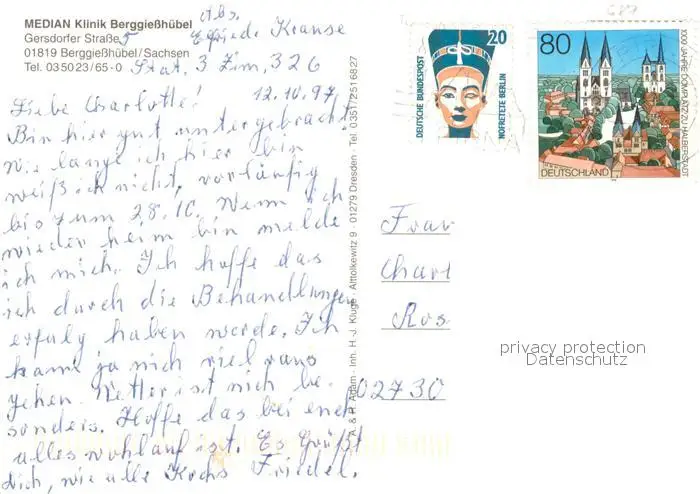 MEDIAN Klinik Berggießhübel
Gersdorfer Straße 5
01819 Berggießhübel/Sachsen
Tel. 035023/65-0
Abs. Elfriede Krause
Stat. 3 Zim, 326
12.10.97
Liebe Charlotte!
Bin hier gut untergebracht.
Wie lange ich hier bin
weiß ich nicht, vorläufig
bis zum 28.10. Wenn ich
wieder heim bin melde
ich mich. Ich hoffe das
ich durch die Behandlungen
erfolg haben werde. Ich
kann ja nich viel raus
gehen. Wetter ist nich be-
sonders. Hoffe das bei euch
alles wohlauf ist. Es Grüßt
Dich, wie alle Kochs Friedel.
A. & R. Adam · Inh. H. J. Kluge · Altolkewitz 9 · 01279 Dresden · Tel. 0351/2516827
20
DEUTSCHE BUNDESPOST
NOFRETETE BERLIN
80
1000 JAHRE DOMPLATZ ZU HALBERSTADT
DEUTSCHLAND
Frau
Charl
Ros
02730
privacy protection
Datenschutz